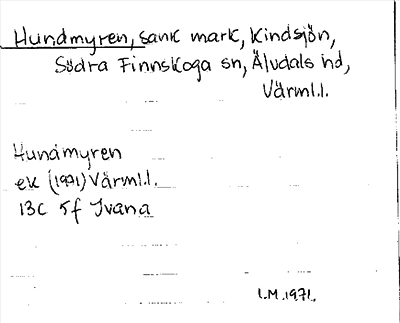 Hundmyren, sank mark, Kindsjön,
Södra Finnskoga sn, Älvdals hd,
Värml.l.
Hundmyren
ek (1971) Värml.l.
13C 5f Ivana
I.M. 1971.